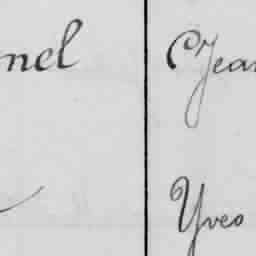 nel Jean
Yves